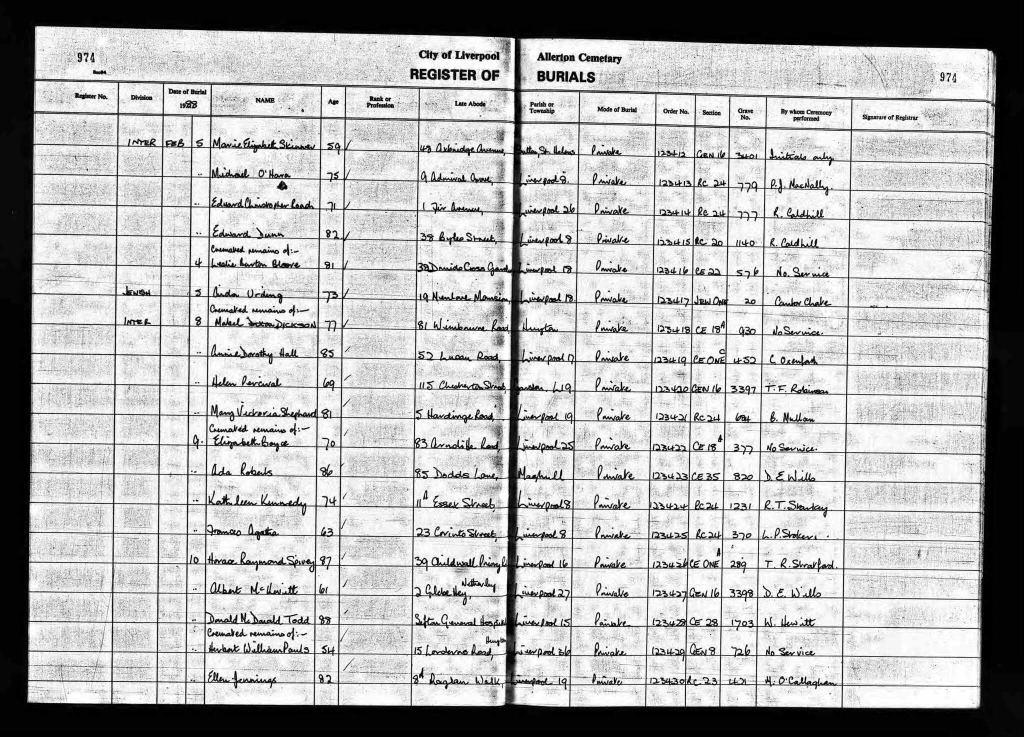 974
City of Liverpool Allerton Cemetary
REGISTER OF BURIALS
974
Register No. Division Date of Burial 1988 NAME Age Rank or Profession Late Abode Parish or Township Mode of Burial Order No. Section Grave No. By whom Ceremony performed Signature of Registrar
INTER FEB 5 Marie Elizabeth Skinner 59 48 Axbridge Avenue, St. Helens Private 123412 GEN 16 3401 Initials only
" Michael O'Hara 75 9 Admiral Grove, Liverpool 8. Private 123413 RC 24 779 P.J. MacNally
" Edward Christopher Roach 71 1 Fir Avenue, Liverpool 26 Private 123414 RC 24 777 R. Caldhill
" Edward Dunn 82 38 Byles Street, Liverpool 8 Private 123415 RC 20 1140 R. Caldhill
Cremated remains of:-
4 Leslie Barton Bloore 81 Liverpool 18 Private 123416 CE 22 576 No. Service
JEWISH 5 73 19 Menlove Mansions, Liverpool 18. Private 123417 JEW ONE 20
Cremated remains of:-
INTER 8 Mabel DICKSON 77 81 Wimbourne Road, Huyton Private 123418 CE 18A 930 No Service.
" Annie Dorothy Hall 85 57 Lucan Road, Liverpool 17 Private 123419 CE ONE C 452 C.
" Helen Percival 69 115 Chesterton Street, L19 Private 123420 GEN 16 3397 T.F. Robinson
" Mary Victoria Shephard 81 5 Hardinge Road, Liverpool 19 Private 123421 RC 24 684 B. Mullan
Cremated remains of:-
9. Elizabeth Boyce 70 83 Arncliffe Road, Liverpool 25 Private 123422 CE 18A 377 No Service.
" Ada Roberts 86 85 Dodds Lane, Maghull Private 123423 CE 35 820 D. E. Wills
" Kathleen Kennedy 74 11A Essex Street, Liverpool 8 Private 123424 RC 24 1231 R.T. Starkey
" Frances Agatha 63 23 Corinto Street, Liverpool 8 Private 123425 RC 24 370 L.P. Stokes.
10 Horace Raymond Spivey 87 39 Childwall Priory Liverpool 16 Private 123426 CE ONE A 289 T. R. Stratford.
" Albert McKevitt 61 2 Glebe Hey Netherley Liverpool 27 Private 123427 GEN 16 3398 D. E. Wills
" Donald McDonald Todd 88 Sefton General Hospital Liverpool 15 Private 123428 CE 28 1703 W. Hewitt
Cremated remains of:-
" Herbert William Pauls 54 15 Road, Huyton Liverpool 36 Private 123429 GEN 8 726 No Service
" Ellen Jennings 82 8A Raglan Walk, Liverpool 19 Private 123430 RC. 23 421 M. O'Callaghan